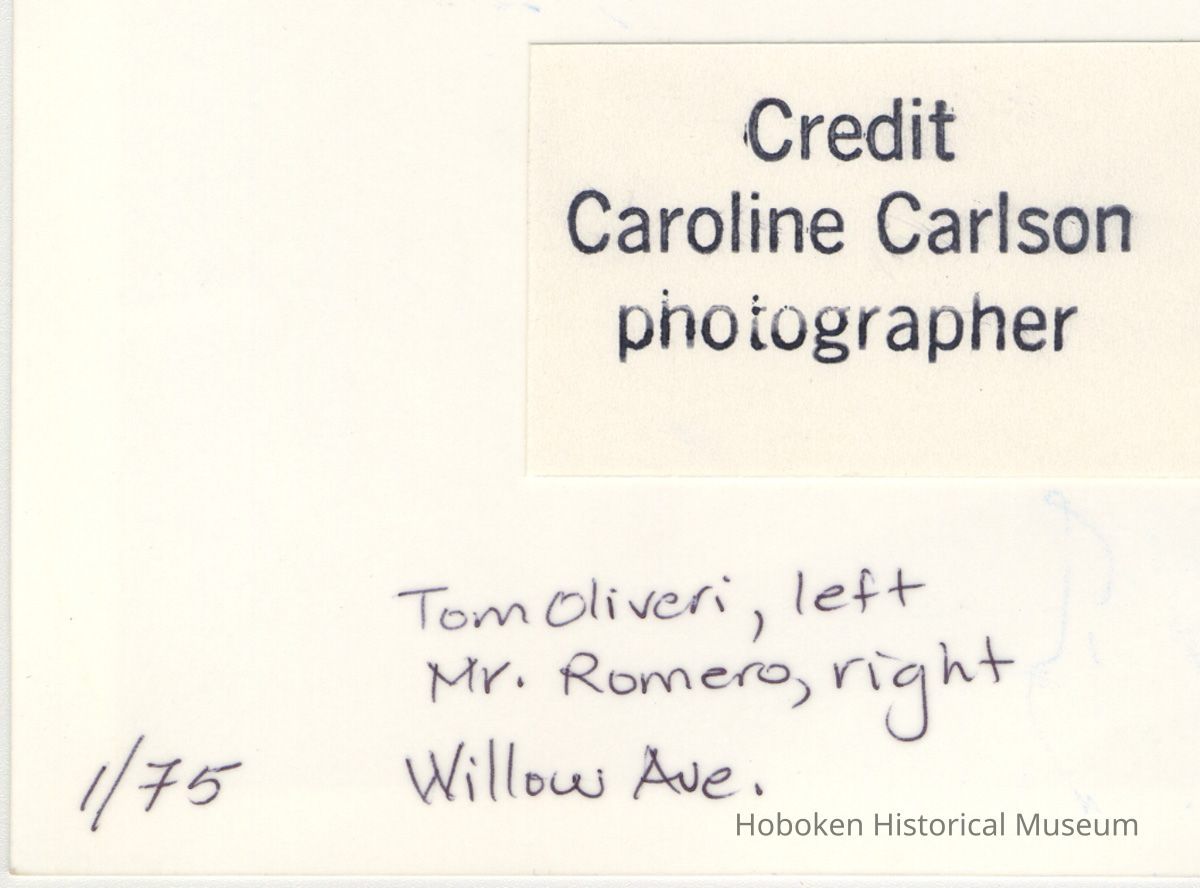 Credit
Caroline Carlson
photographer
Tom Oliveri, left
Mr. Romero, right
1/75 Willow Ave.
Hoboken Historical Museum